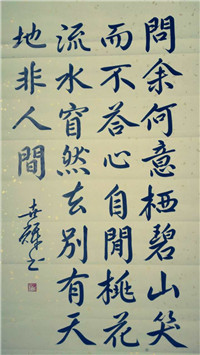 問余何意栖碧山笑
而不答心自閒桃花
流水窅然去別有天
地非人間